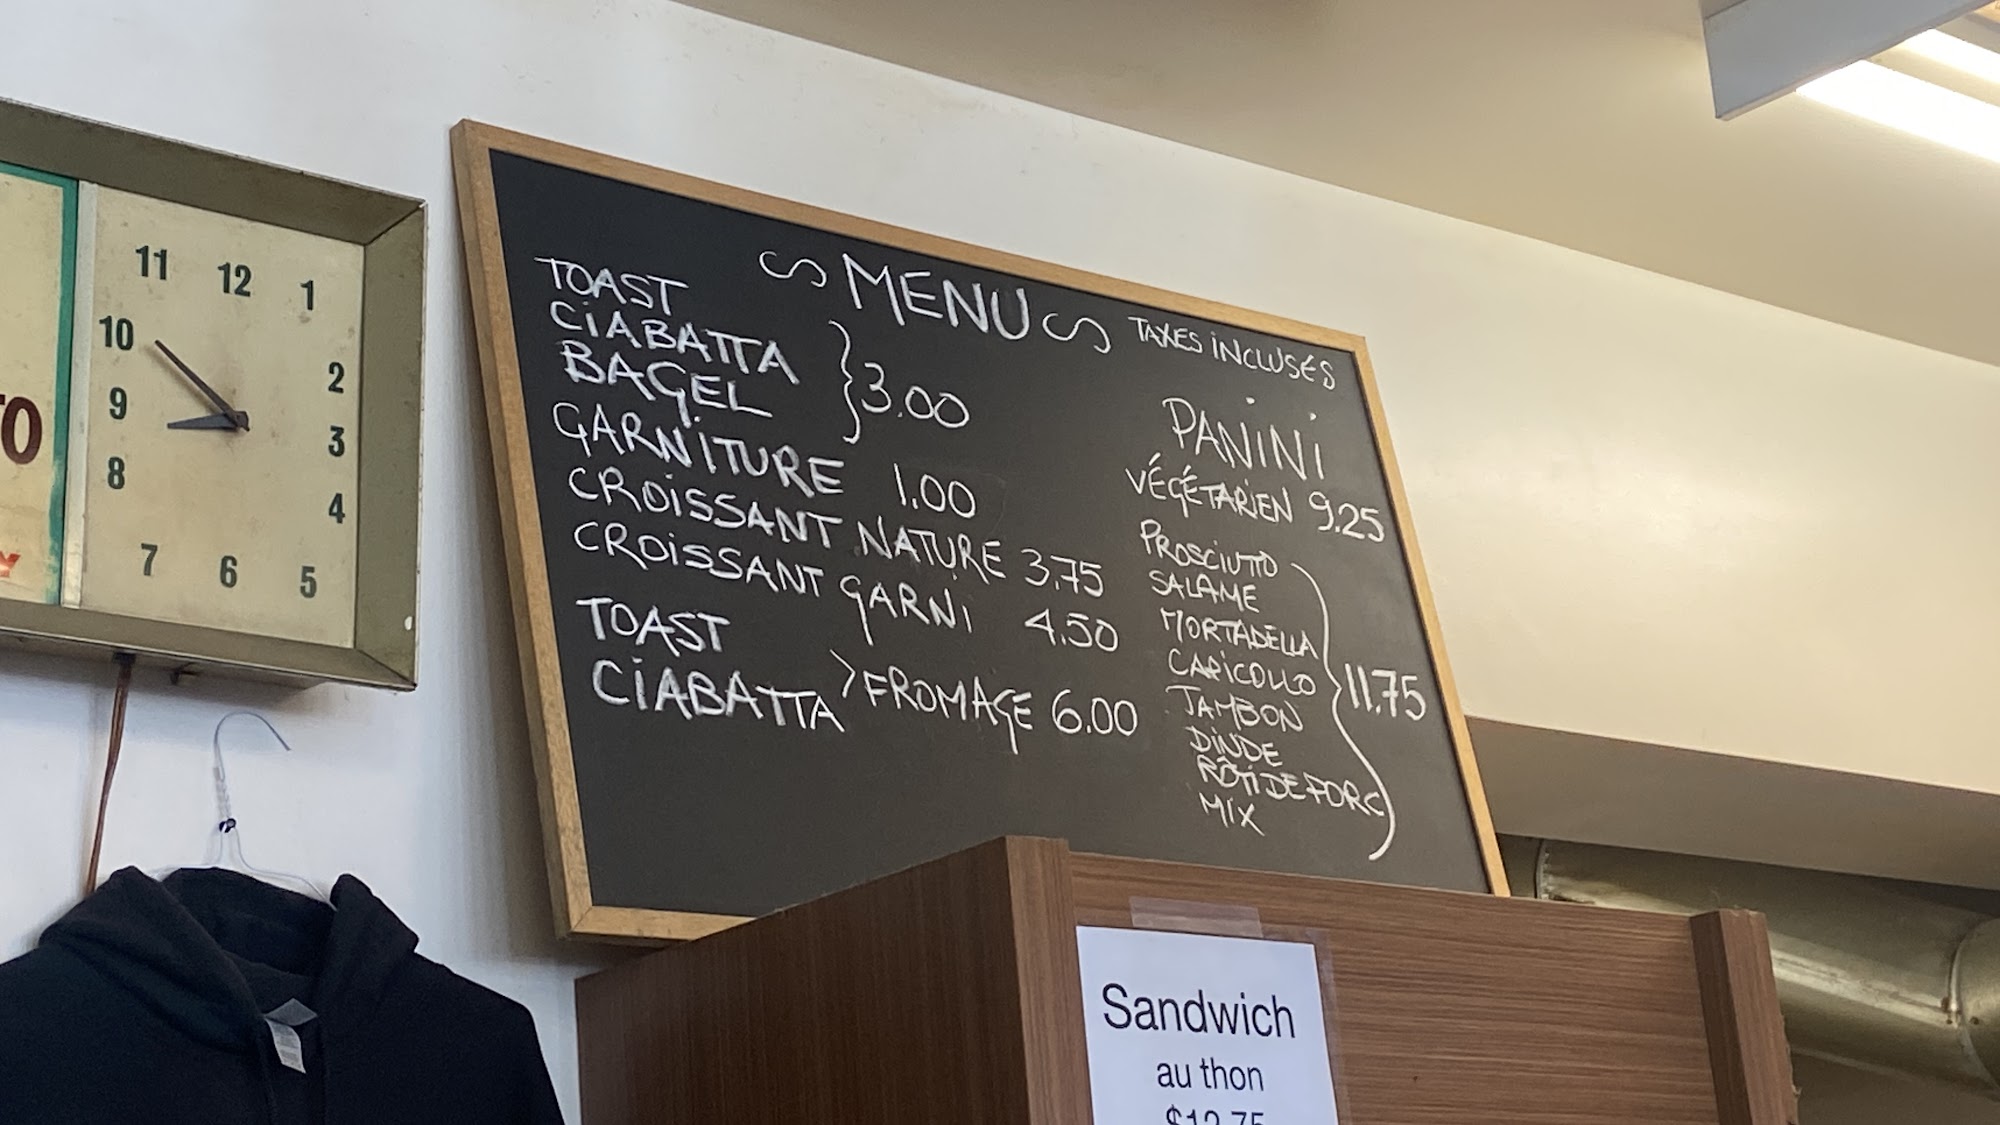 11 12 1
10 2
9 3
8 4
7 6 5
TO
Y
MENU
TAXES INCLUSÉS
TOAST
CIABATTA
BAGEL
3.00
GARNITURE 1.00
CROISSANT NATURE 3.75
CROISSANT GARNI 4.50
TOAST
CIABATTA
FROMAGE 6.00
PANINI
VÉGÉTARIEN 9.25
PROSCIUTO
SALAME
MORTADELLA
CAPICOLLO
JAMBON
DINDE
RÔTI DE PORC
MIX
11.75
Sandwich
au thon
$12.75